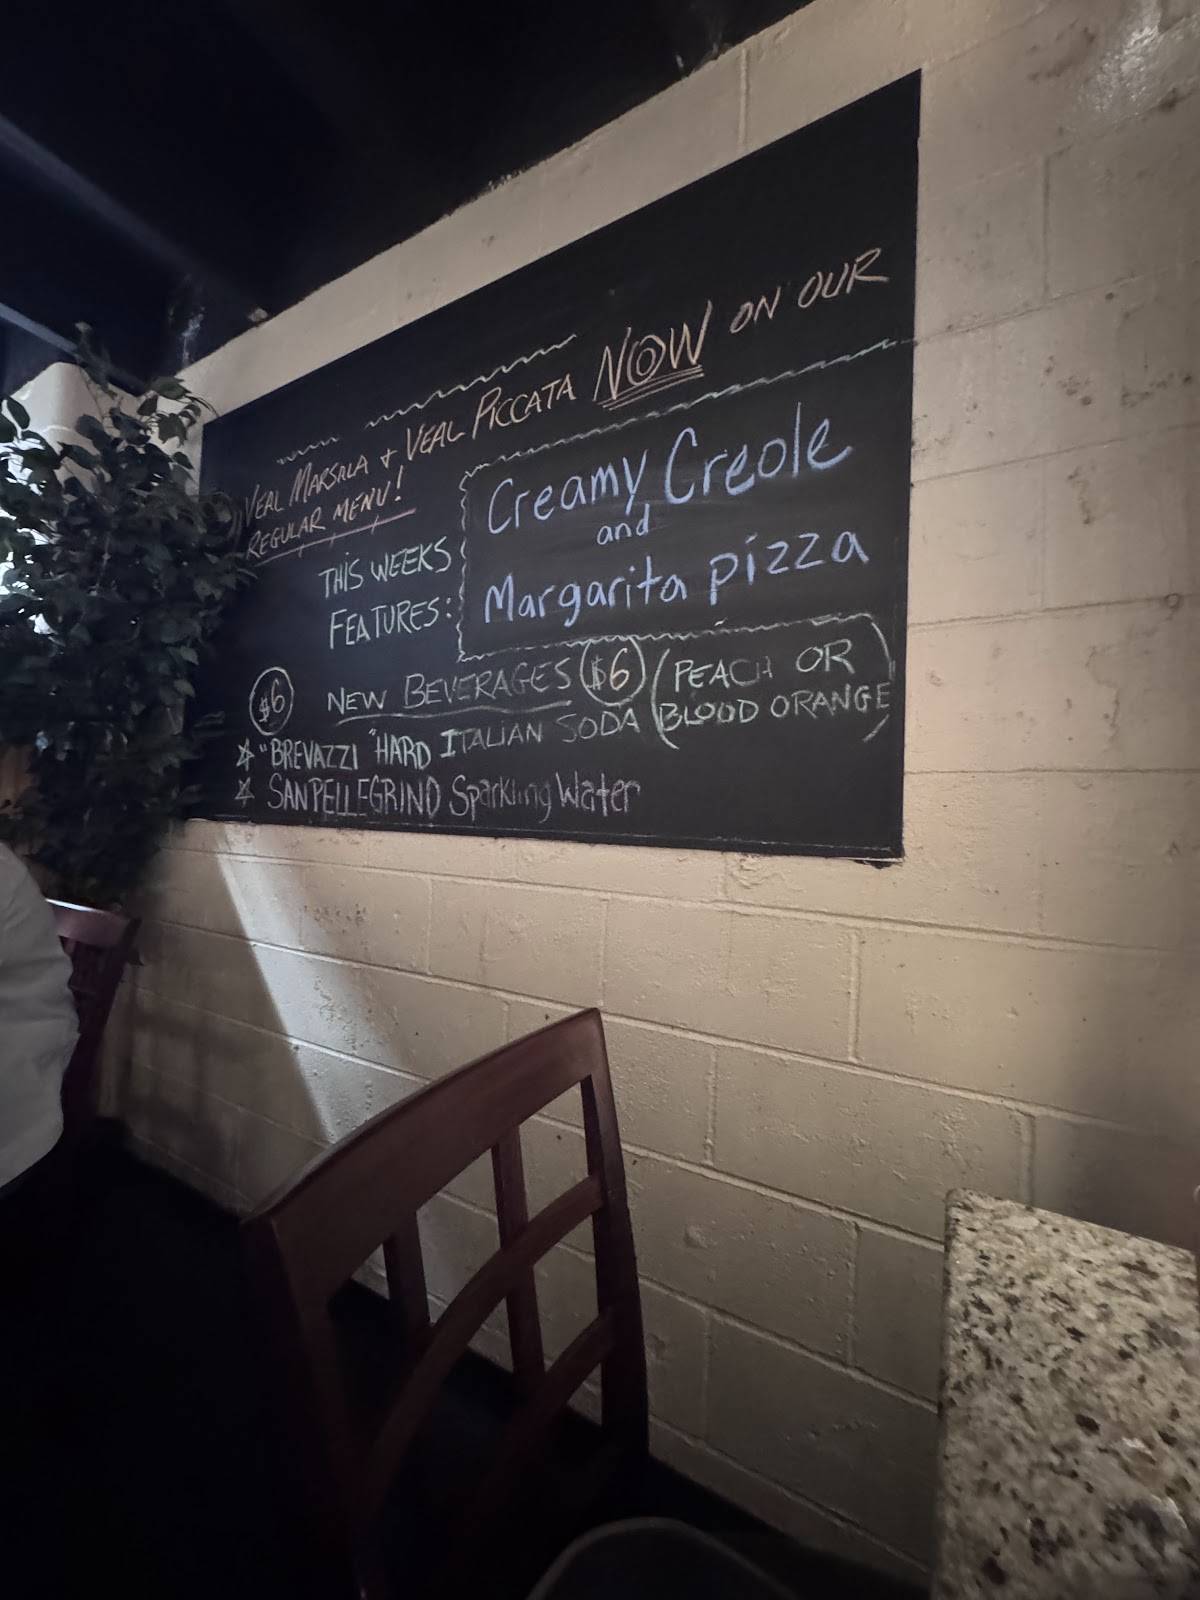 VEAL MARSALA + VEAL PICCATA NOW ON OUR
REGULAR MENU!
THIS WEEKS
FEATURES:
Creamy Creole
and
Margarita pizza
$6 NEW BEVERAGES $6
☆ "BREVAZZI" HARD ITALIAN SODA (PEACH OR
BLOOD ORANGE)
☆ SANPELLEGRINO Sparkling Water